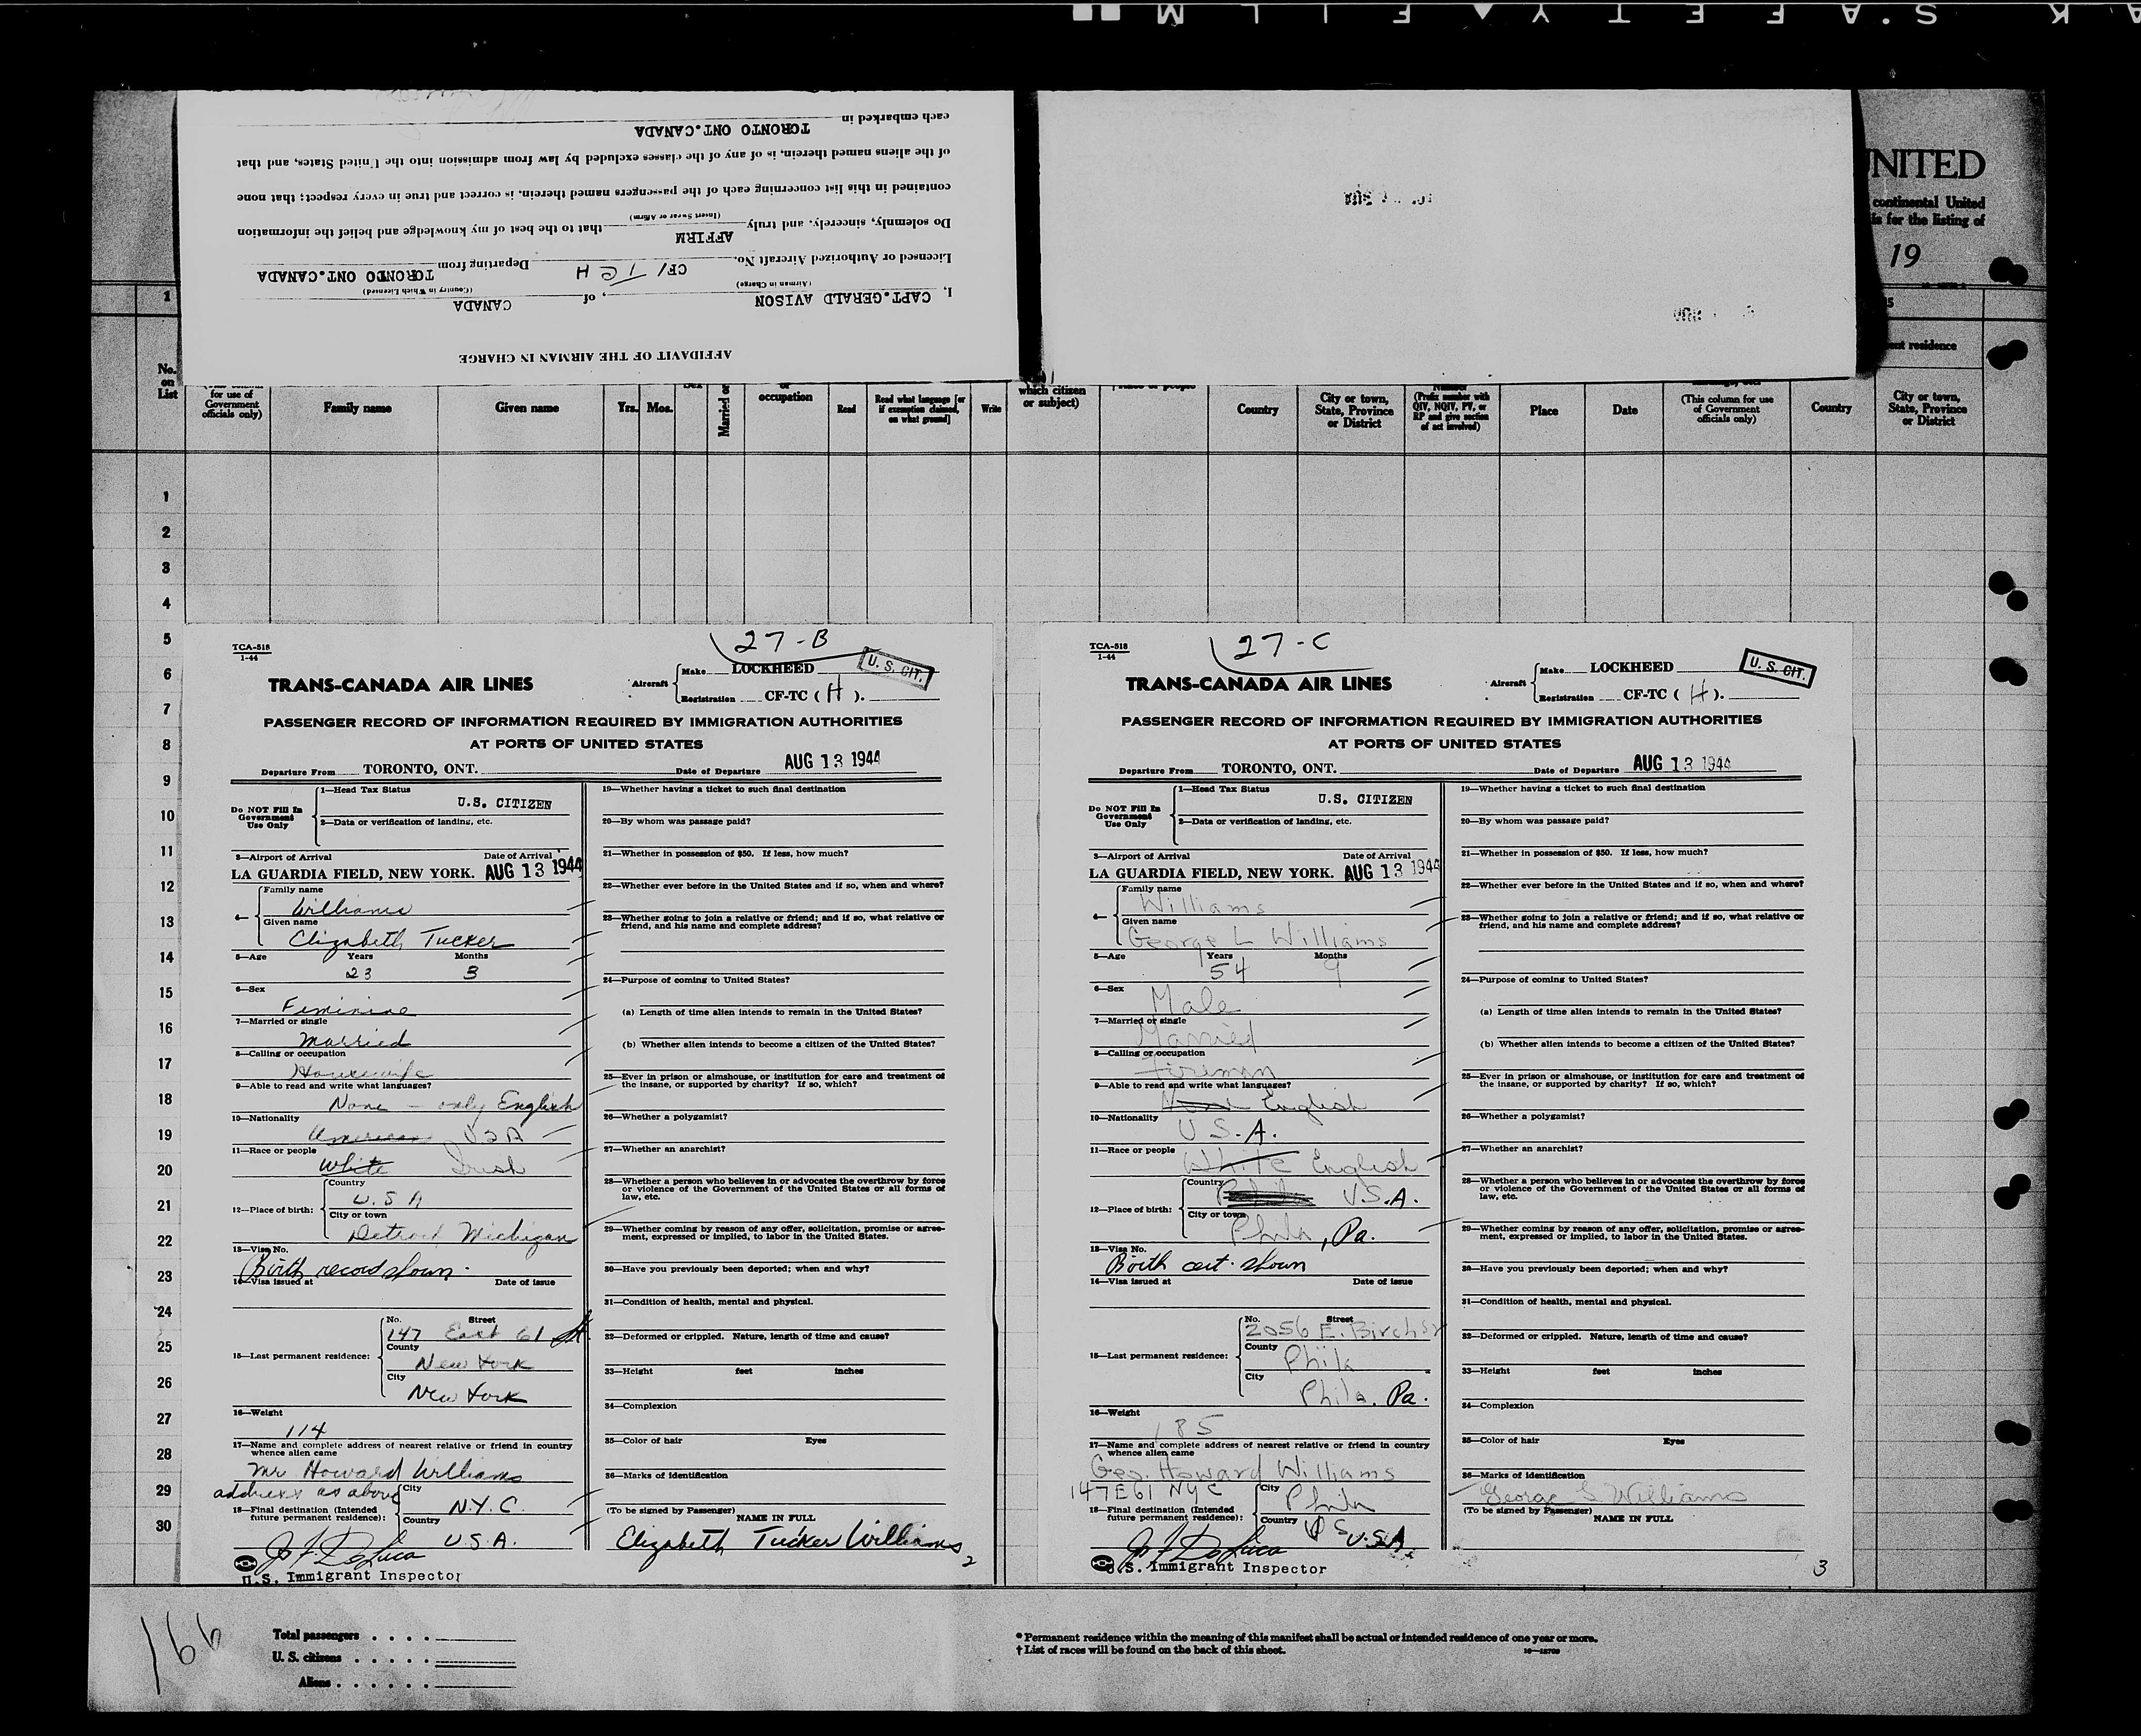 K S'AFETY FILM
AFFIDAVIT OF THE AIRMAN IN CHARGE
I, CAPT.GERALD AVISON, of CANADA
(Airman in Charge) (Country in Which Licensed)
Licensed or Authorized Aircraft No. CF/TCH Departing from TORONTO ONT.CANADA
Do solemnly, sincerely, and truly AFFIRM that to the best of my knowledge and belief the information
(Insert Swear or Affirm)
contained in this list concerning each of the passengers named therein, is correct and true in every respect; that none
of the aliens named therein, is of any of the classes excluded by law from admission into the United States, and that
each embarked in TORONTO ONT.CANADA
UNITED
continental United
is for the listing of
19
1
No. on List
for use of Government officials only)
Family name
Given name
Yrs. Mos.
Sex
Married or
or occupation
Read
Read what language [or if exemption claimed, on what ground]
Write
which citizen or subject)
Country
City or town, State, Province or District
Number
(Prefix number with QIV, NQIV, PV, or RP and give section of act involved)
Place
Date
(This column for use of Government officials only)
ent residence
Country
City or town, State, Province or District
1
2
3
4
5
6
7
8
9
10
11
12
13
14
15
16
17
18
19
20
21
22
23
24
25
26
27
28
29
30
27-B
TCA-518
1-44
TRANS-CANADA AIR LINES
Aircraft Make LOCKHEED
Registration CF-TC (H).
U. S. CIT.
PASSENGER RECORD OF INFORMATION REQUIRED BY IMMIGRATION AUTHORITIES
AT PORTS OF UNITED STATES
Departure From TORONTO, ONT. Date of Departure AUG 13 1944
Do NOT Fill In Government Use Only
1—Head Tax Status
U.S. CITIZEN
2—Data or verification of landing, etc.
3—Airport of Arrival Date of Arrival
LA GUARDIA FIELD, NEW YORK. AUG 13 1944
4— Family name
Williams
Given name
Elizabeth Tucker
5—Age Years Months
23 3
6—Sex
Feminine
7—Married or single
Married
8—Calling or occupation
Housewife
9—Able to read and write what languages?
None — only English
10—Nationality
American USA
11—Race or people
White Irish
12—Place of birth: Country
U.S A
City or town
Detroit, Michigan
13—Visa No.
Birth record shown.
14—Visa issued at Date of issue
15—Last permanent residence: No. Street
147 East 61 St.
County
New York
City
New York
16—Weight
114
17—Name and complete address of nearest relative or friend in country whence alien came
Mr Howard Williams
address as above
18—Final destination (Intended future permanent residence): City
N.Y.C.
Country
U.S.A.
U.S. Immigrant Inspector
19—Whether having a ticket to such final destination
20—By whom was passage paid?
21—Whether in possession of $50. If less, how much?
22—Whether ever before in the United States and if so, when and where?
23—Whether going to join a relative or friend; and if so, what relative or
friend, and his name and complete address?
24—Purpose of coming to United States?
(a) Length of time alien intends to remain in the United States?
(b) Whether alien intends to become a citizen of the United States?
25—Ever in prison or almshouse, or institution for care and treatment of
the insane, or supported by charity? If so, which?
26—Whether a polygamist?
27—Whether an anarchist?
28—Whether a person who believes in or advocates the overthrow by force
or violence of the Government of the United States or all forms of
law, etc.
29—Whether coming by reason of any offer, solicitation, promise or agree-
ment, expressed or implied, to labor in the United States.
30—Have you previously been deported; when and why?
31—Condition of health, mental and physical.
32—Deformed or crippled. Nature, length of time and cause?
33—Height feet inches
34—Complexion
35—Color of hair Eyes
36—Marks of identification
(To be signed by Passenger)
NAME IN FULL
Elizabeth Tucker Williams
2
27-C
TCA-518
1-44
TRANS-CANADA AIR LINES
Aircraft Make LOCKHEED
Registration CF-TC (H).
U. S. CIT.
PASSENGER RECORD OF INFORMATION REQUIRED BY IMMIGRATION AUTHORITIES
AT PORTS OF UNITED STATES
Departure From TORONTO, ONT. Date of Departure AUG 13 1944
Do NOT Fill In Government Use Only
1—Head Tax Status
U.S. CITIZEN
2—Data or verification of landing, etc.
3—Airport of Arrival Date of Arrival
LA GUARDIA FIELD, NEW YORK. AUG 13 1944
4— Family name
Williams
Given name
George L Williams
5—Age Years Months
54 9
6—Sex
Male
7—Married or single
Married
8—Calling or occupation
Foreman
9—Able to read and write what languages?
None English
10—Nationality
U S.A.
11—Race or people
White English
12—Place of birth: Country
Phila U.S.A.
City or town
Phila, Pa.
13—Visa No.
Birth cert. shown
14—Visa issued at Date of issue
15—Last permanent residence: No. Street
2056 E. Birch St
County
Phila
City
Phila. Pa.
16—Weight
185
17—Name and complete address of nearest relative or friend in country whence alien came
Geo. Howard Williams
147 E 61 NYC
18—Final destination (Intended future permanent residence): City
Phila
Country
U S U.S.A.
U.S. Immigrant Inspector
19—Whether having a ticket to such final destination
20—By whom was passage paid?
21—Whether in possession of $50. If less, how much?
22—Whether ever before in the United States and if so, when and where?
23—Whether going to join a relative or friend; and if so, what relative or
friend, and his name and complete address?
24—Purpose of coming to United States?
(a) Length of time alien intends to remain in the United States?
(b) Whether alien intends to become a citizen of the United States?
25—Ever in prison or almshouse, or institution for care and treatment of
the insane, or supported by charity? If so, which?
26—Whether a polygamist?
27—Whether an anarchist?
28—Whether a person who believes in or advocates the overthrow by force
or violence of the Government of the United States or all forms of
law, etc.
29—Whether coming by reason of any offer, solicitation, promise or agree-
ment, expressed or implied, to labor in the United States.
30—Have you previously been deported; when and why?
31—Condition of health, mental and physical.
32—Deformed or crippled. Nature, length of time and cause?
33—Height feet inches
34—Complexion
35—Color of hair Eyes
36—Marks of identification
George L Williams
(To be signed by Passenger)
NAME IN FULL
3
166
Total passengers
U. S. citizens
Aliens
* Permanent residence within the meaning of this manifest shall be actual or intended residence of one year or more.
† List of races will be found on the back of this sheet.